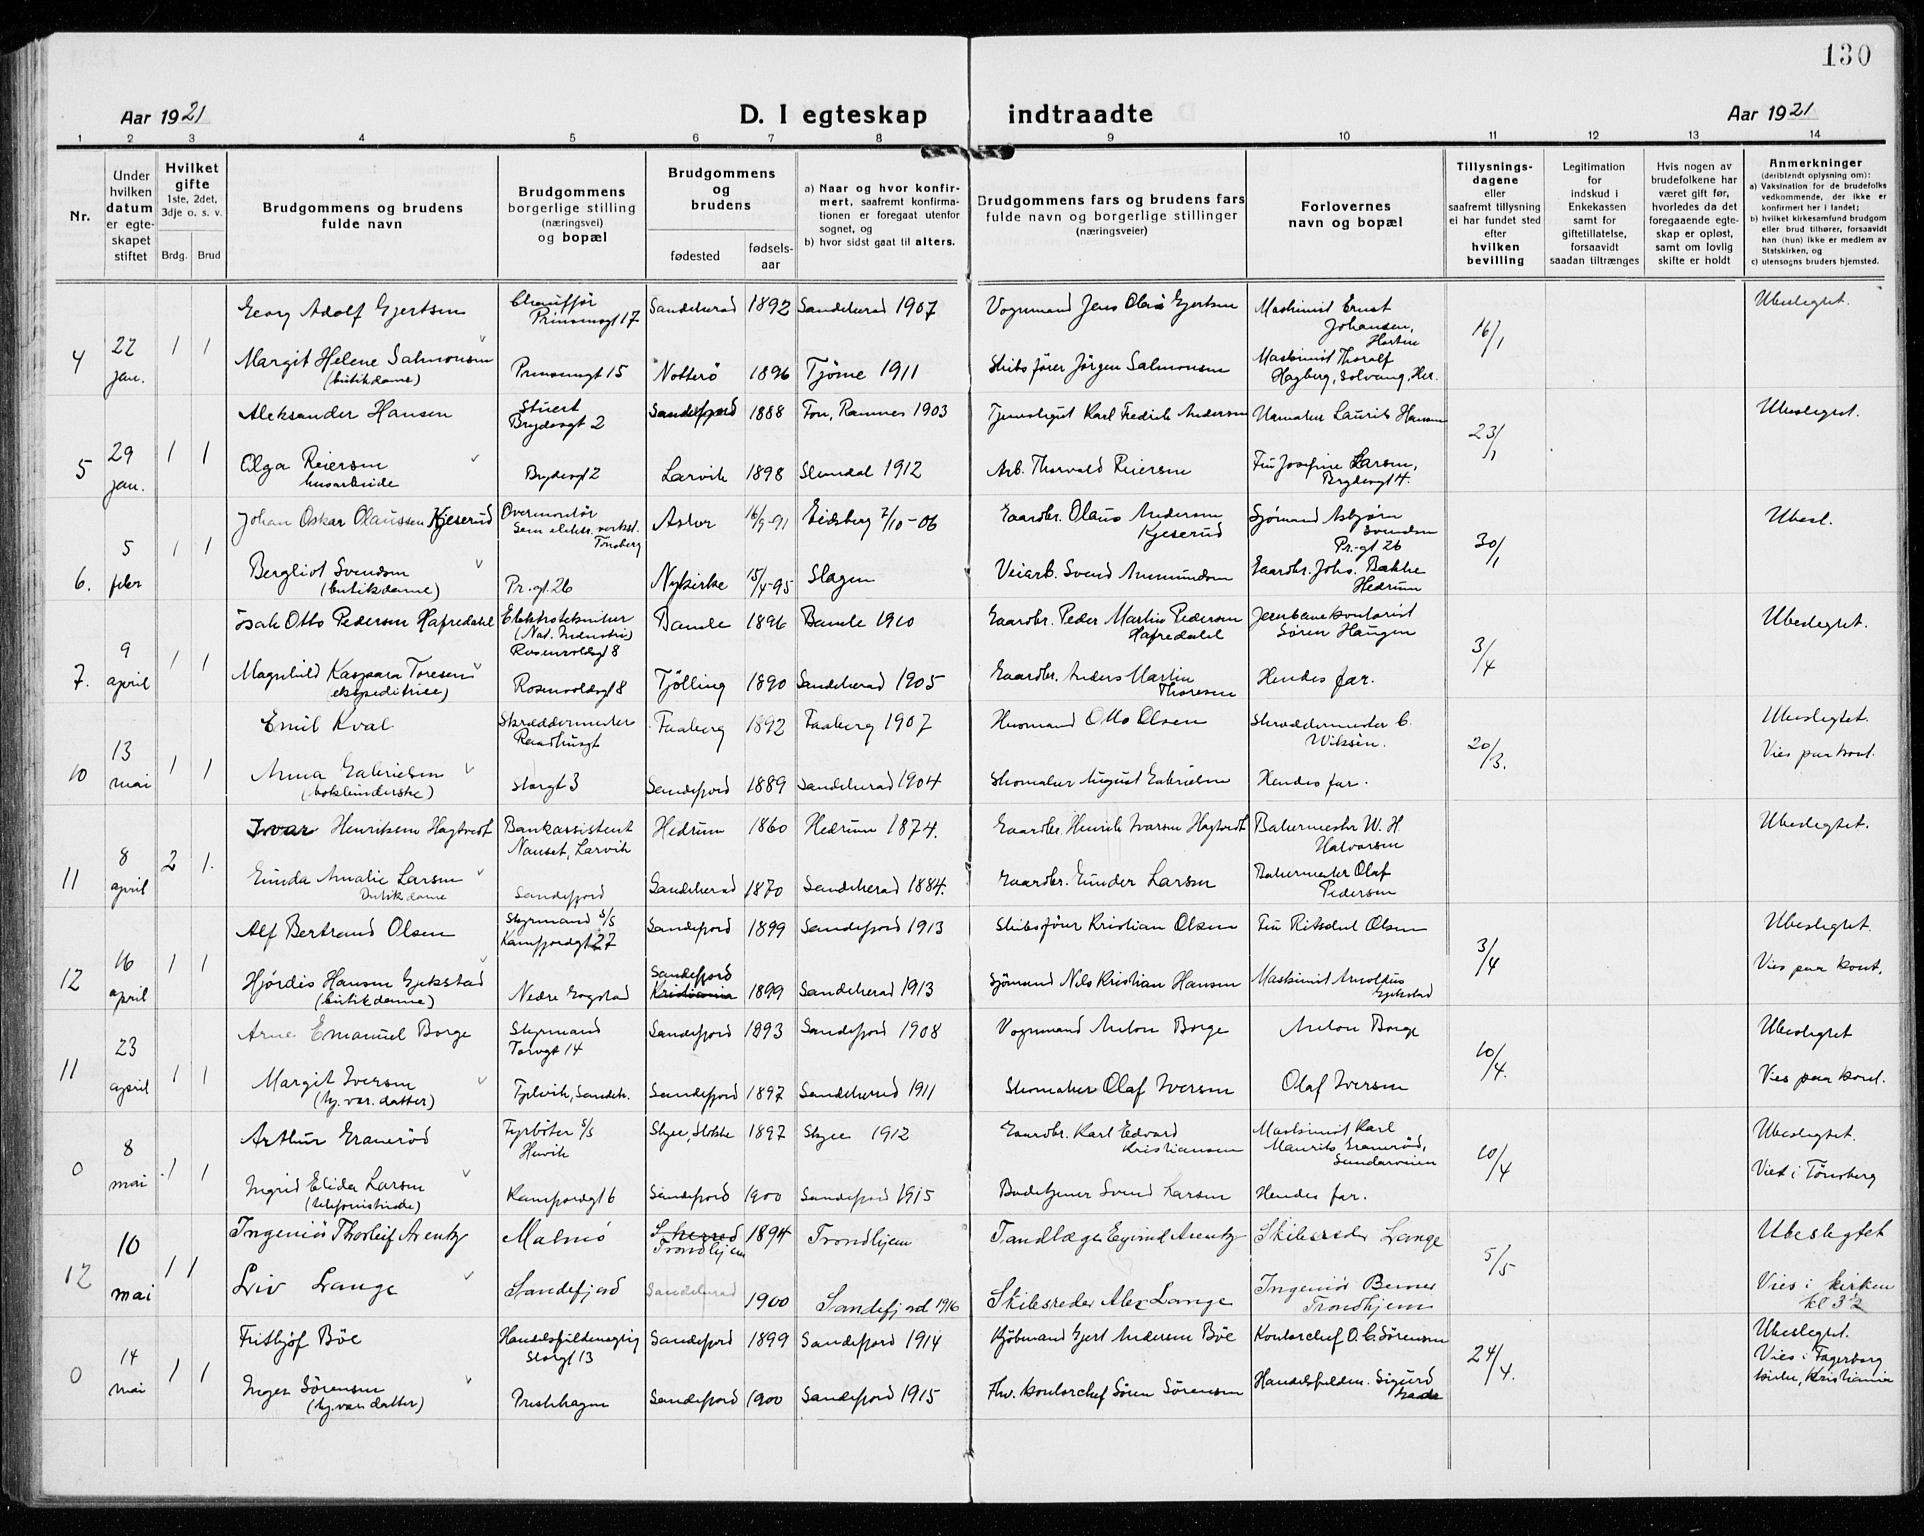 130
Aar 1921
D. I egteskap indtraadte
Aar 1921
1 2 3 4 5 6 7 8 9 10 11 12 13 14
Nr.
Under hvilken datum er egteskapet stiftet
Hvilket gifte
1ste, 2det, 3dje o. s. v.
Brdg. Brud
Brudgommens og brudens fulde navn
Brudgommens borgerlige stilling (næringsvei) og bopæl
Brudgommens og brudens
fødested
fødselsaar
a) Naar og hvor konfirmert, saafremt konfirmationen er foregaat utenfor sognet, og
b) hvor sidst gaat til alters.
Brudgommens fars og brudens fars fulde navn og borgerlige stillinger (næringsveier)
Forlovernes navn og bopæl
Tillysningsdagene eller saafremt tillysning ei har fundet sted efter hvilken bevilling
Legitimation for indskud i Enkekassen samt for giftetillatelse, forsaavidt saadan tiltrænges
Hvis nogen av brudefolkene har været gift før, hvorledes da det foregaaende egteskap er opløst, samt om lovlig skifte er holdt
Anmerkninger
(deriblendt oplysning om):
a) Vaksination for de brudefolks vedkommende, der ikke er konfirmert her i landet;
b) hvilket kirkesamfund brudgom eller brud tilhører, forsaavidt han (hun) ikke er medlem av Statskirken, og
c) utensogns bruders hjemsted.
4 22 jan. 1 1
Georg Adolf Gjertsen Chauffør Prinsensgt 17 Sandeherad 1892 Sandeherad 1907 Vognmand Jens Olaus Gjertsen Maskinist Ernst Johansen, Horten 16/1 Ubeslegtet.
Margit Helene Salmonsen (butikdame) Prinsensgt 15 Nøtterø 1896 Tjøme 1911 Skibsfører Jørgen Salmonsen Maskinist Thoralf Hagberg, Solvang, Her.
5 29 jan. 1 1
Aleksander Hansen Stuert Brydesgt 2 Sandefjord 1888 Fon, Ramnes 1903 Tjenestegut Karl Fredrik Andersen Urmaker Laurits Hansen 23/1 Ubeslegtet.
Olga Reiersen husarbeide Brydesgt 2 Larvik 1898 Slemdal 1912 Arb. Thorvald Reiersen Fru Josefine Larsen, Brydesgt 4.
6. 5 febr 1 1
Johan Oskar Olaussen Kjeserud Overmontør Sem elektr. verkst. Tønsberg Askor 16/9-91 Eidsberg 7/10-06 Gaardbr. Olaus Andersen Kjeserud Sjømand Asbjørn Svendsen Pr.-gt 26 30/1 Ubesl.
Bergliot Svendsen (butikdame) Pr.-gt. 26 Nykirke 15/4-95 Slagen Veiarb. Svend Ammundsen Gaardbr. Johs. Bakke Hedrum
7. 9 april 1 1
Isak Otto Pedersen Hafredahl Elektrotekniker (Nat. Industri) Rosenvoldsgt 8 Bamle 1896 Bamle 1910 Gaardbr. Peder Martin Pedersen Hafredahl Jernbanekontorist Søren Haugen 3/4 Ubeslegtet.
Magnhild Kaspara Toresen (ekspeditrise) Rosenvoldsgt 8 Tjølling 1890 Sandeherad 1905 Gaardbr. Anders Martin Thoresen Hendes far.
10 13 mai 1 1
Emil Kval Skræddermester Raadhusgt Faaberg 1892 Faaberg 1907 Husmand Otto Olsen Skræddermester C. Wiksén. 20/3. Ubeslegtet.
Anna Gabrielsen (bokbinderske) Storgt 3 Sandefjord 1889 Sandeherad 1904 Skomaker August Gabrielsen Hendes far. Vies paa kont.
11 8 april 2 1.
Ivar Henriksen Hagtvedt Bankassistent Nanset, Larvik Hedrum 1860 Hedrum 1874. Gaardbr. Henrik Ivarsen Hagtvedt Bakermester W. H Halvorsen Ubeslegtet.
Gunda Amalie Larsen Butikdame Sandefjord Sandeherad 1870 Sandeherad 1884. Gaardbr. Gunder Larsen Bakermester Olaf Pedersen
12 16 april 1 1
Alf Bertrand Olsen Styrmand S/S Kamfjordgt 27 Sandefjord 1899 Sandefjord 1913 Skibsfører Kristian Olsen Fru Olsen 3/4 Ubeslegtet.
Hjørdis Hansen Gjekstad (butikdame) Nedre Gogstad Sandefjord Kristiania 1899 Sandeherad 1913 Sjømand Nils Kristian Hansen Maskinist Arnoldus Gjekstad Vies paa kont.
11 23 april 1 1
Arne Emanuel Borge Styrmand Torvgt 14 Sandefjord 1893 Sandefjord 1908 Vognmand Anton Borge Anton Borge 10/4. Ubeslegtet
Margit Iversen (hj. vær. datter) Fjelvik, Sandeh. Sandefjord 1897 Sandeherred 1911 Skomaker Olaf Iversen Olaf Iversen Vies paa kont.
0 8 mai 1 1
Arthur Granerød Fyrbøter S/S Skjee, Stokke 1897 Skjee 1912 Gaardbr. Karl Edvard Kristiansen Maskinist Karl Maurits Granerød, 10/4 Ubeslegtet.
Ingrid Elida Larsen (telefonistinde) Kamfjordgt 6 Sandefjord 1900 Sandefjord 1915 Svend Larsen Hendes far. Viet i Tønsberg
12 10 mai 1 1
Ingeniør Thorleif Arentz Malmø S.herred Trondhjem 1894 Trondhjem Tandlæge Eyvind Arentz Skibsreder Lange 5/5 Ubeslegtet
Liv Lange Sandefjord Sandeherad 1900 Sandefjord 1916 Skibsreder Alex Lange Ingeniør Berner Trondhjem Vies i kirken kl 3½
0 14 mai 1 1
Fritjof Bøe Handelsfuldmægtig Storgt 13 Sandefjord 1899 Sandefjord 1914 Kjøbmand Gjert Andersen Bøe Kontorchef O. C. Sørensen 24/4. Ubeslegtet.
Inger Sørensen (hj. vær. datter) Prestehagen Sandefjord 1900 Sandefjord 1915 Fhv. kontorchef Søren Sørensen Handelsfuldm. Sigurd Vies i Fagerborg kirke, Kristiania